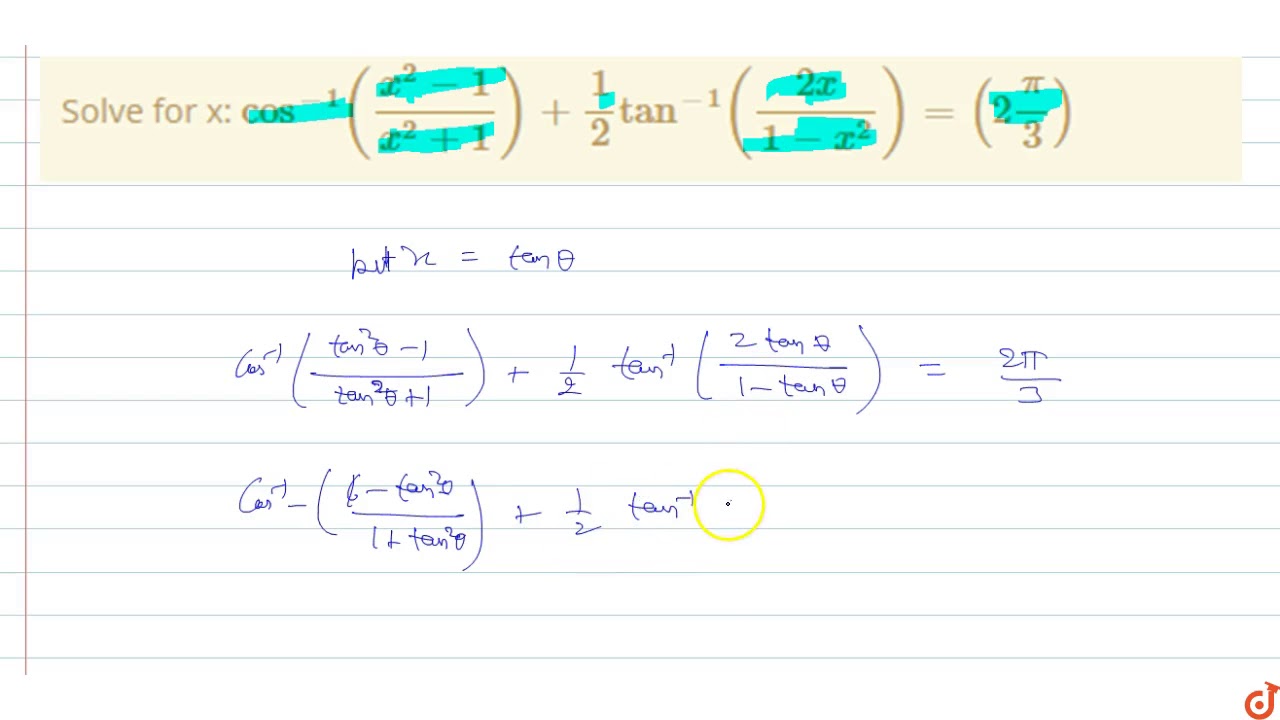 Solve for x: cos⁻¹((x² − 1)/(x² + 1)) + 1/2 tan⁻¹(2x/(1 − x²)) = (2 π/3)
put x = tan θ
Cos⁻¹((tan²θ − 1)/(tan²θ + 1)) + 1/2 tan⁻¹(2 tan θ/(1 − tan θ)) = 2π/3
Cos⁻¹ − ((1 − tan²θ)/(1 + tan²θ)) + 1/2 tan⁻¹